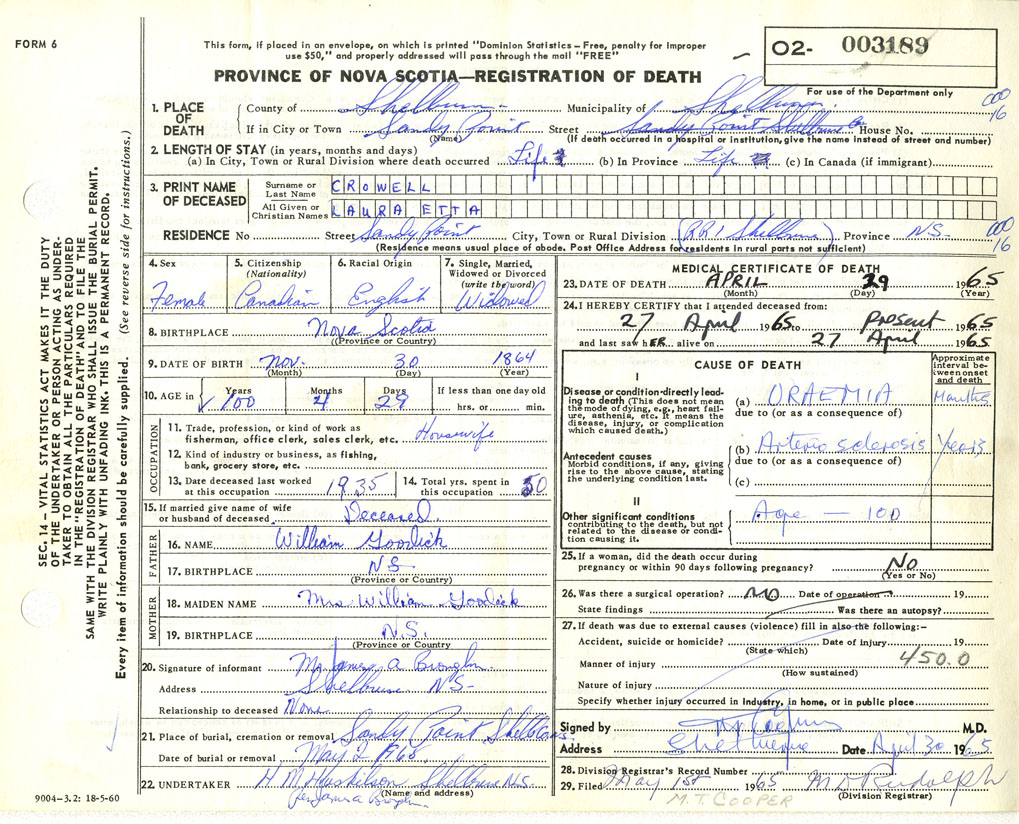 FORM 6
This form, if placed in an envelope, on which is printed "Dominion Statistics – Free, penalty for improper
use $50," and properly addressed will pass through the mail "FREE"
O2- 003189
PROVINCE OF NOVA SCOTIA—REGISTRATION OF DEATH
For use of the Department only
000
16
1. PLACE OF DEATH
County of Shelburne Municipality of Shelburne
If in City or Town Sandy Point Street Sandy Point Shelburne Co House No.
(Name) (If death occurred in a hospital or institution, give the name instead of street and number)
2. LENGTH OF STAY (in years, months and days)
(a) In City, Town or Rural Division where death occurred Life (b) In Province Life (c) In Canada (if immigrant)
3. PRINT NAME OF DECEASED
Surname or Last Name CROWELL
All Given or Christian Names LAURA ETTA
RESIDENCE No Street Sandy Point City, Town or Rural Division (RR1 Shelburne) Province N.S.
(Residence means usual place of abode. Post Office Address for residents in rural parts not sufficient)
000
16
4. Sex
Female
5. Citizenship
(Nationality)
Canadian
6. Racial Origin
English
7. Single, Married,
Widowed or Divorced
(write the word)
Widowed
8. BIRTHPLACE Nova Scotia
(Province or Country)
9. DATE OF BIRTH Nov. 30 1864
(Month) (Day) (Year)
10. AGE in Years 100 Months 4 Days 29 If less than one day old
hrs. or min.
OCCUPATION
11. Trade, profession, or kind of work as
fisherman, office clerk, sales clerk, etc. Housewife
12. Kind of industry or business, as fishing,
bank, grocery store, etc.
13. Date deceased last worked
at this occupation 1935
14. Total yrs. spent in
this occupation 50
15. If married give name of wife
or husband of deceased Deceased
FATHER
16. NAME William Goodick
17. BIRTHPLACE NS
(Province or Country)
MOTHER
18. MAIDEN NAME Mrs William Goodick
19. BIRTHPLACE N.S.
(Province or Country)
20. Signature of informant James A
Address Shelburne NS-
Relationship to deceased None
21. Place of burial, cremation or removal Sandy Point
Date of burial or removal May 2 1965
22. UNDERTAKER H M Huskilson Shelburne N.S.
(Name and address)
9004-3.2: 18-5-60
MEDICAL CERTIFICATE OF DEATH
23. DATE OF DEATH APRIL 29 1965
(Month) (Day) (Year)
24. I HEREBY CERTIFY that I attended deceased from:
27 April 1965 to Present 1965
and last saw hER alive on 27 April 1965
CAUSE OF DEATH
Approximate
interval be-
tween onset
and death
I
Disease or condition directly lead-
ing to death (This does not mean
the mode of dying, e.g., heart fail-
ure, asthenia, etc. It means the
disease, injury, or complication
which caused death.)
(a) URAEMIA Months
due to (or as a consequence of)
Antecedent causes
Morbid conditions, if any, giving
rise to the above cause, stating
the underlying condition last.
(b) Arterio sclerosis Years
due to (or as a consequence of)
(c)
II
Other significant conditions
contributing to the death, but not
related to the disease or condi-
tion causing it.
Age — 100
25. If a woman, did the death occur during
pregnancy or within 90 days following pregnancy? No
(Yes or No)
26. Was there a surgical operation? NO Date of operation 19
State findings Was there an autopsy?
27. If death was due to external causes (violence) fill in also the following:–
Accident, suicide or homicide? Date of injury 19
(State which)
450.0
Manner of injury
(How sustained)
Nature of injury
Specify whether injury occurred in Industry, in home, or in public place
Signed by M.D.
Address Shelburne Date April 30 1965
28. Division Registrar's Record Number
29. Filed May 1st 1965 M D Rudolph
(Division Registrar)
M.T. COOPER
SEC. 14 – VITAL STATISTICS ACT MAKES IT THE DUTY
OF THE UNDERTAKER OR PERSON ACTING AS UNDER-
TAKER TO OBTAIN ALL THE PARTICULARS REQUIRED
IN THE "REGISTRATION OF DEATH" AND TO FILE THE
SAME WITH THE DIVISION REGISTRAR WHO SHALL ISSUE THE BURIAL PERMIT.
WRITE PLAINLY WITH UNFADING INK. THIS IS A PERMANENT RECORD.
Every item of information should be carefully supplied. (See reverse side for instructions.)